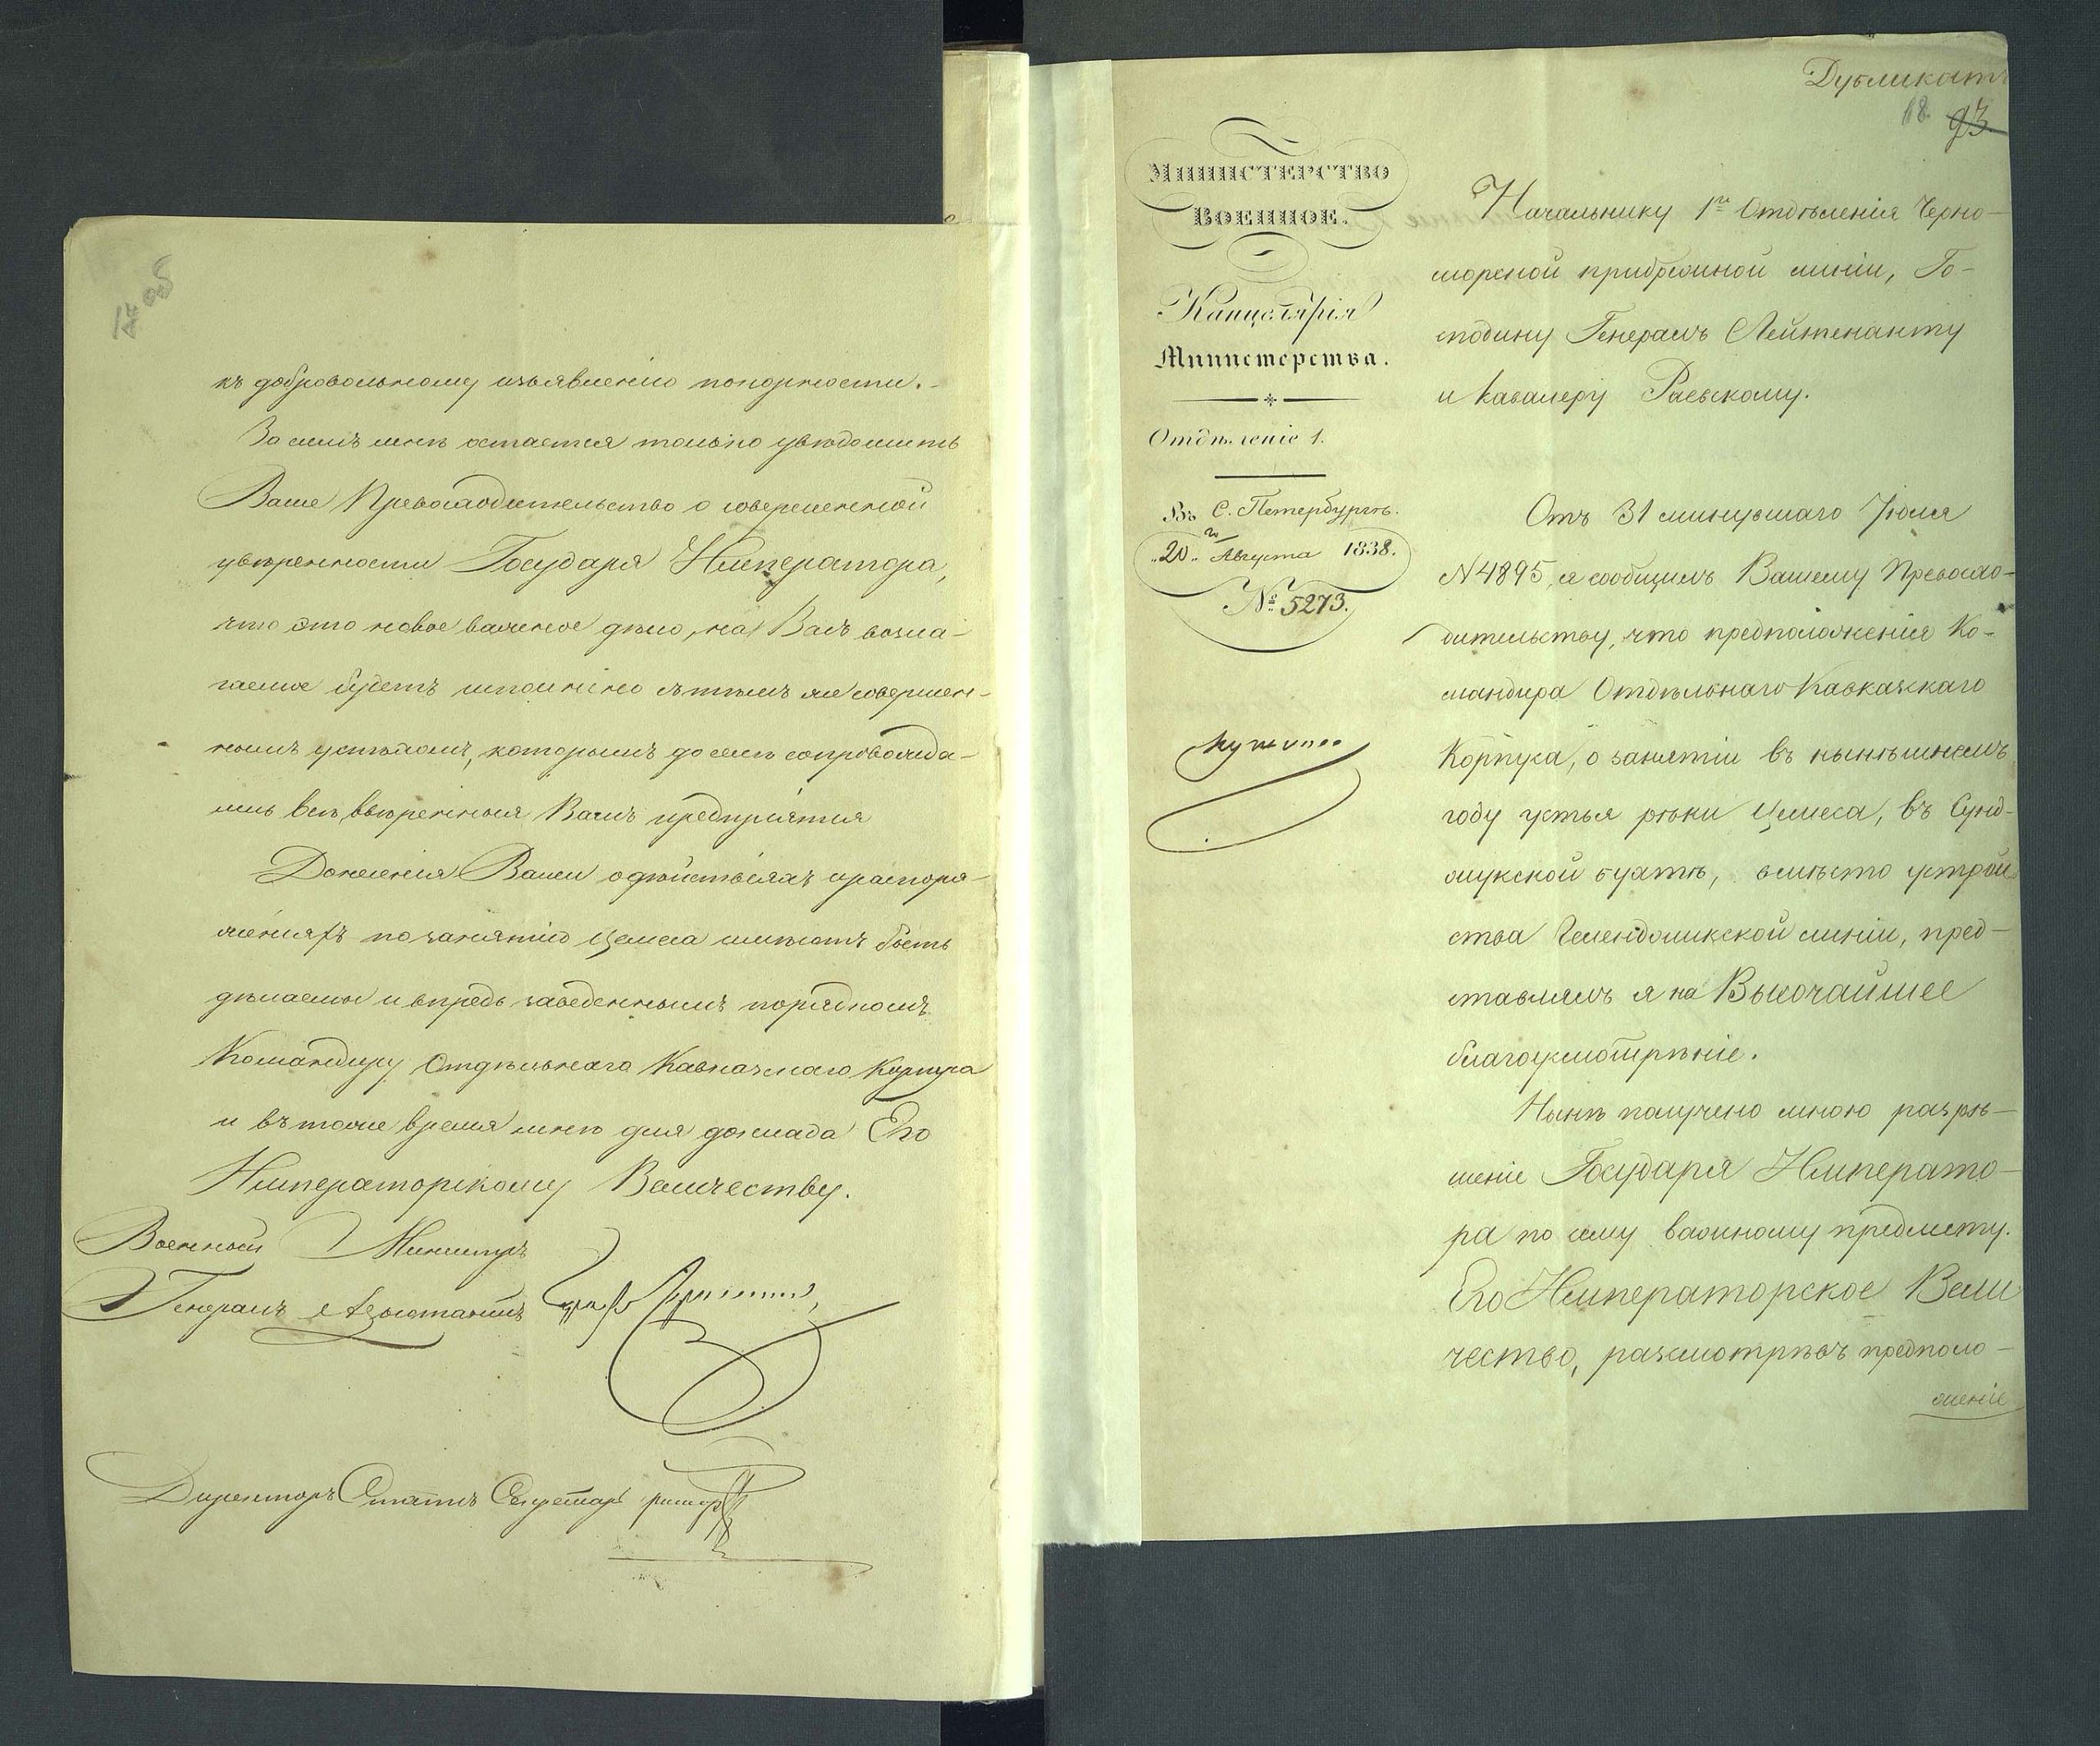 къ добровольному изъявленію покорности.
За симъ мнѣ остается только увѣдомить
Ваше Превосходительство о совершенной
увѣренности Государя Императора,
что это новое важное дѣло, на Васъ возла-
гаемое будетъ исполнено съ тѣмъ же совершен-
нымъ успѣхомъ, которымъ до селѣ сопровожда-
лись всѣ ввѣренныя Вамъ предпріятія
Донесенія Ваши о дѣйствіяхъ и распоря-
женіяхъ по занятію Цемеса имѣютъ быть
дѣлаемы и впредь заведеннымъ порядкомъ
Командиру Отдѣльнаго Кавказскаго Корпуса
и въ тоже время мнѣ для доклада Его
Императорскому Величеству.
Военный Министръ
Генералъ Адъютантъ Графъ Чернышевъ
Директоръ Статсъ Секретарь
Дубликатъ
18. 93
МИНИСТЕРСТВО
ВОЕННОЕ.
Канцелярія
Министерства.
Отдѣленіе 1.
Въ С. Петербургѣ.
"20" го Августа 1838.
№ 5273.
Начальнику 1го Отдѣленія Черно-
морской прибрежной линіи, Го-
сподину Генералъ Лейтенанту
и Кавалеру Раевскому.
Отъ 31 минувшаго Іюля
N 4895, я сообщилъ Вашему Превосхо-
дительству, что предположенія Ко-
мандира Отдѣльнаго Кавказскаго
Корпуса, о занятіи въ нынѣшнемъ
году устья рѣки Цемеса, въ Суд-
жукской бухтѣ, вмѣсто устрой
ства Геленджикской линіи, пред-
ставлялъ я на Высочайшее
благоусмотрѣніе.
Нынѣ получено мною разрѣ-
шеніе Государя Императо-
ра по сему важному предмету.
Его Императорское Вели
чество, разсмотрѣвъ предполо-
женіе